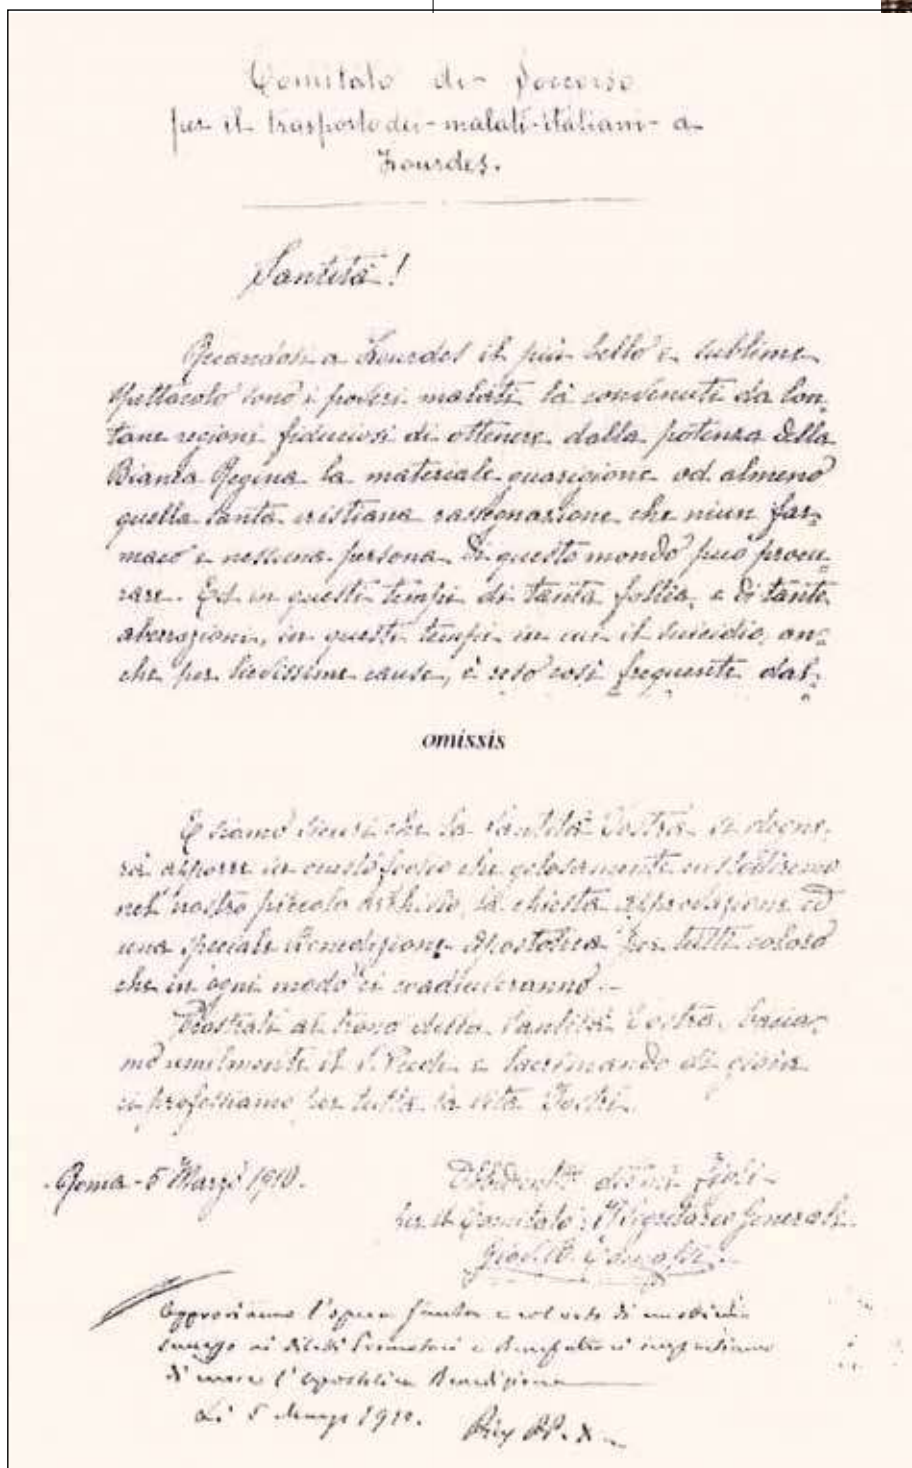 Comitato di Soccorso
per il trasporto dei malati italiani a
Lourdes.
Santità!
a Lourdes il più bello e sublime
spettacolo sono i poveri malati là convenuti da lon-
tane regioni fiduciosi di ottenere dalla potenza della
Bianca Regina la materiale guarigione od almeno
quella santa cristiana rassegnazione che niun far-
maco e nessuna persona di questo mondo può procu-
rare. Ed in questi tempi di tanta follia, e di tante
aberrazioni, in questi tempi in cui il suicidio, an-
che per lievissime cause, è reso così frequente dal-
omissis
E siamo sicuri che la Santità Vostra si degne-
rà apporre in questo foglio che gelosamente custodiremo
nel nostro piccolo archivio, la chiesta approvazione ed
una speciale Benedizione Apostolica per tutti coloro
che in ogni modo ci coadiuveranno.
Prostrati al trono della Santità Vostra, bacia-
mo umilmente il S. Piede e lacrimando di gioia
ci professiamo per tutta la vita Vostri
Roma - 5 Marzo 1910.
figli
per il Comitato: Il Segretario Generale
Approviamo l'opera santa e col voto di
successo ai diletti Promotori e Benefattori impartiamo
di cuore l'Apostolica Benedizione
Li 5 Marzo 1910.
Pius PP. X